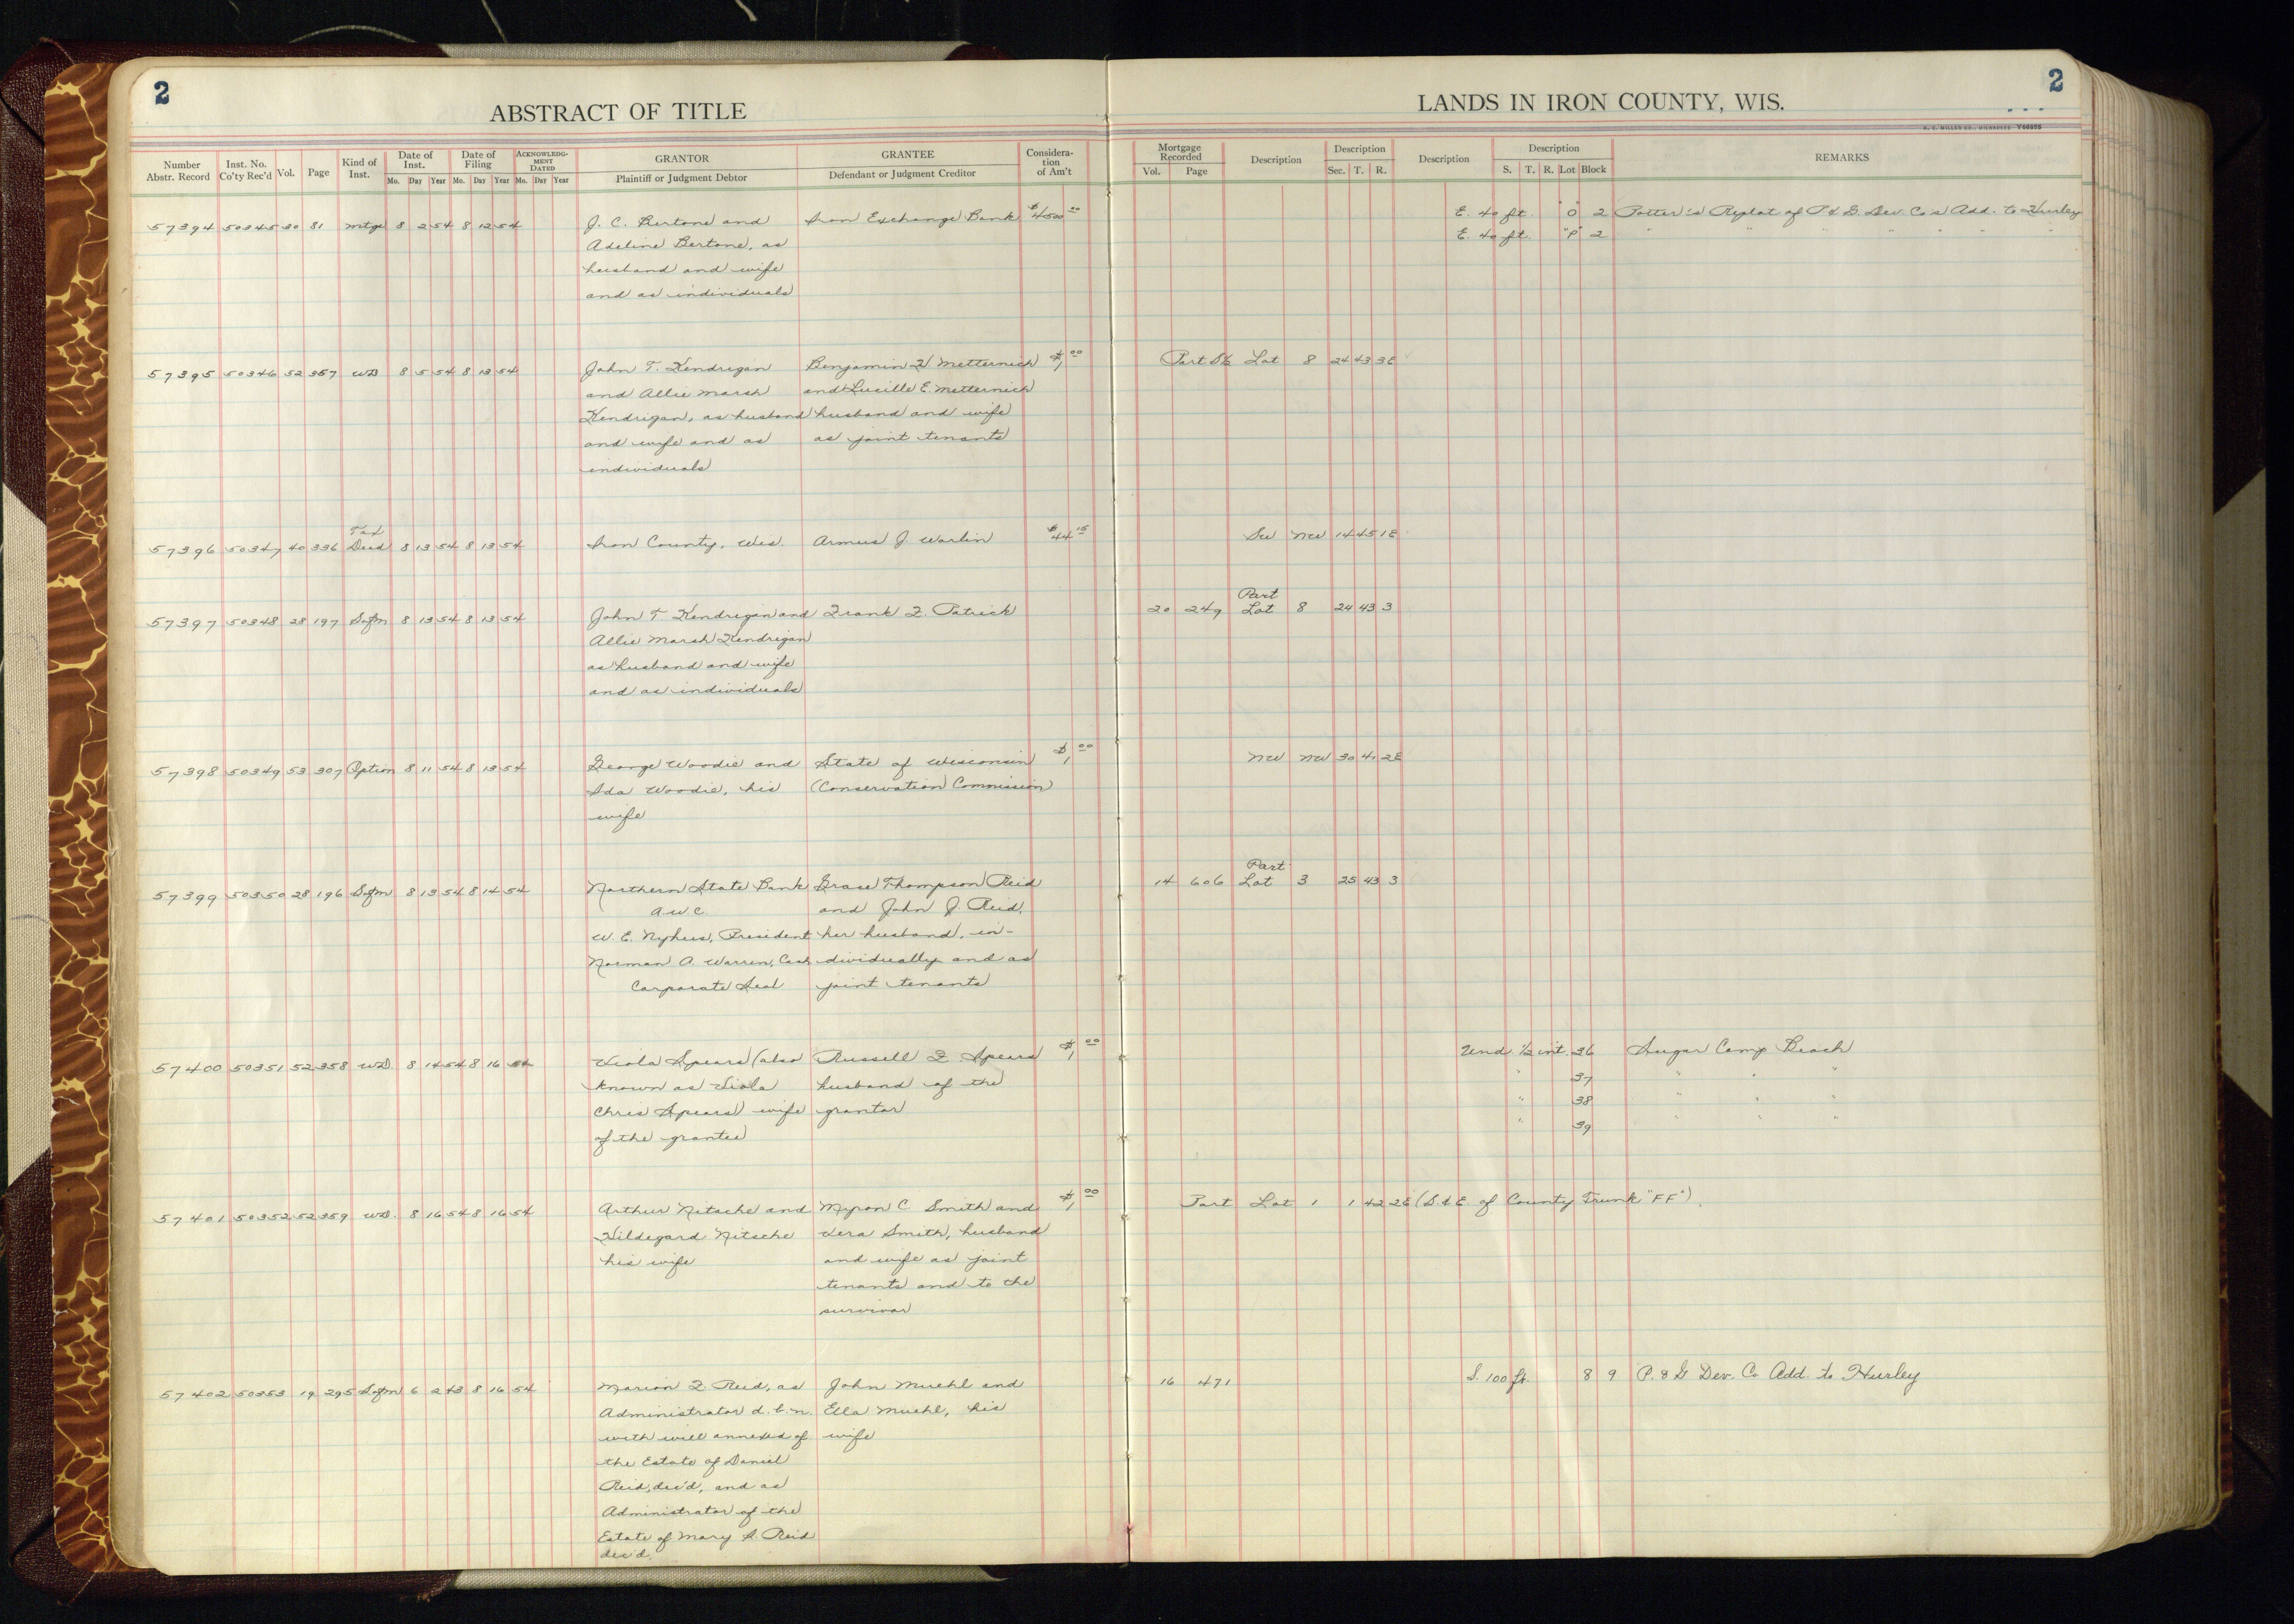 2
ABSTRACT OF TITLE
LANDS IN IRON COUNTY, WIS.
2
H. C. MILLER CO., MILWAUKEE Y66895
Number Abstr. Record Inst. No. Co'ty Rec'd Vol. Page Kind of Inst. Date of Inst. Mo. Day Year Date of Filing Mo. Day Year ACKNOWLEDGMENT DATED Mo. Day Year GRANTOR Plaintiff or Judgment Debtor GRANTEE Defendant or Judgment Creditor Considera-tion of Am't Mortgage Recorded Vol. Page Description Description Sec. T. R. Description Description S. T. R. Lot Block REMARKS
57394 50345 30 81 Mtge 8 2 54 8 12 54 J. C. Bertone and Iron Exchange Bank $4500 00 E. 40 ft. "O" 2 Potter's Replat of P & G. Dev. Co's Add. to Hurley
Adeline Bertone, as E. 40 ft. "P" 2 " " " " " " "
husband and wife
and as individuals
57395 50346 52 357 WD 8 5 54 8 13 54 John T. Kendrigan Benjamin F. Metternich $1 00 Part Lot 8 24 43 3E
and Allie Marsh and Lucille E. Metternich
Kendrigan, as husband husband and wife
and wife and as as joint tenants
individuals
57396 50347 40 336 Tax Deed 8 13 54 8 13 54 Iron County, Wis. Armus J Warlin $44 15 SW NW 14 45 1E
57397 50348 28 197 Sofm 8 13 54 8 13 54 John T. Kendrigan and Frank F. Patrick 20 249 Part Lot 8 24 43 3
Allie Marsh Kendrigan
as husband and wife
and as individuals
57398 50349 53 307 Option 8 11 54 8 13 54 George Woodie and State of Wisconsin $1 00 NW NW 30 41 2E
Ida Woodie, his (Conservation Commission)
wife
57399 50350 28 196 Sofm 8 13 54 8 14 54 Northern State Bank Grace Thompson Reid 14 606 Part Lot 3 25 43 3
A.W.C. and John J. Reid,
W. E. Nyhus, President her husband, in-
Norman A. Warren, Cash. dividually and as
Corporate Seal joint tenants
57400 50351 52 358 WD. 8 14 54 8 16 54 Viola Spears (also Russell F. Spears $1 00 Und. 1/2 int. 36 Sugar Camp Beach
known as Viola husband of the " 37 " " "
Chris Spears) wife grantor " 38 " " "
of the grantee " 39 " " "
57401 50352 52 359 WD. 8 16 54 8 16 54 Arthur Nitsche and Myron C. Smith and $1 00 Part Lot 1 1 42 2E (S. & E. of County Trunk "FF").
Hildegard Nitsche Vera Smith, husband
his wife and wife as joint
tenants and to the
survivor
57402 50353 19 295 Sofm 6 2 43 8 16 54 Marion F. Reid, as John Muehl and 16 471 S. 100 ft. 8 9 P. & G Dev. Co Add. to Hurley
Administrator d.b.n. Ella Muehl, his
with will annexed of wife
the Estate of Daniel
Reid, dec'd, and as
Administrator of the
Estate of Mary A. Reid
dec'd.